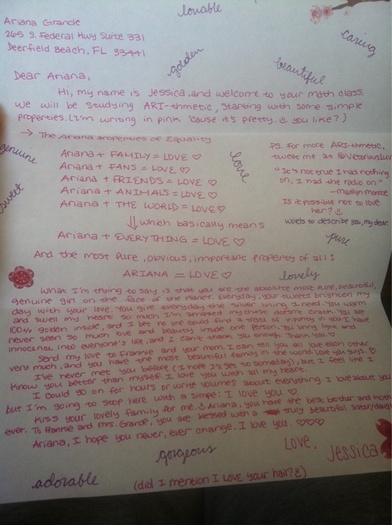 lovable
Ariana Grande
2605 S. Federal Hwy Suite 331
Deerfield Beach, FL 33441
caring
golden
Dear Ariana,
beautiful
Hi, my name is Jessica, and welcome to your math class.
We will be studying ARI-thmetic, starting with some simple
properties. (I'm writing in pink 'cause it's pretty. you like?)
→ The Ariana Properties of Equality
genuine
Ariana + FAMILY = LOVE ♡
Ariana + FANS = LOVE ♡
Ariana + FRIENDS = LOVE ♡
Ariana + ANIMALS = LOVE ♡
Ariana + THE WORLD = LOVE ♡
sweet
love
PS. For more ARI-thmetic,
tweet me at
"It's not true I had nothing
on, I had the radio on"
-Marilyn Monroe
Is it possible not to love
her?
words to describe you, my dear
pure
⇓ which basically means
Ariana + EVERYTHING = LOVE ♡
And the most pure, obvious, important property of all:
ARIANA = LOVE ♡
lovely
What I'm trying to say is that you are the absolute most pure, beautiful,
genuine girl on the face of the planet. Everyday, your tweets brighten my
day with your love. You give everybody that
and swell my heart so much I'm surprised my chest doesn't burst. You are
100% golden inside, and I bet no one could find a trace of in you. I have
never seen so much love and beauty inside one person. You bring light and
innocence into everyone's life, and I can't thank you enough. Thank you.
Send my love to Frankie and your mom. I can tell you all love each other
very much, and you have the most beautiful family in the world.
I've never met you before (I hope it's 'yet' to someday), but I feel like I
know you better than myself. I love you with all my heart.
I could go on for hours or write volumes about everything I love about you
but I'm going to stop here with a simple: I love you ♡
Kiss your lovely family for me. Ariana, you have the best brother and mother
ever. To Frankie and Mrs. Grande, you are blessed with a truly beautiful
Ariana, I hope you never, ever change. I love you. ♡♡♡
gorgeous
Love,
Jessica
adorable
(did I mention I LOVE your hair?)